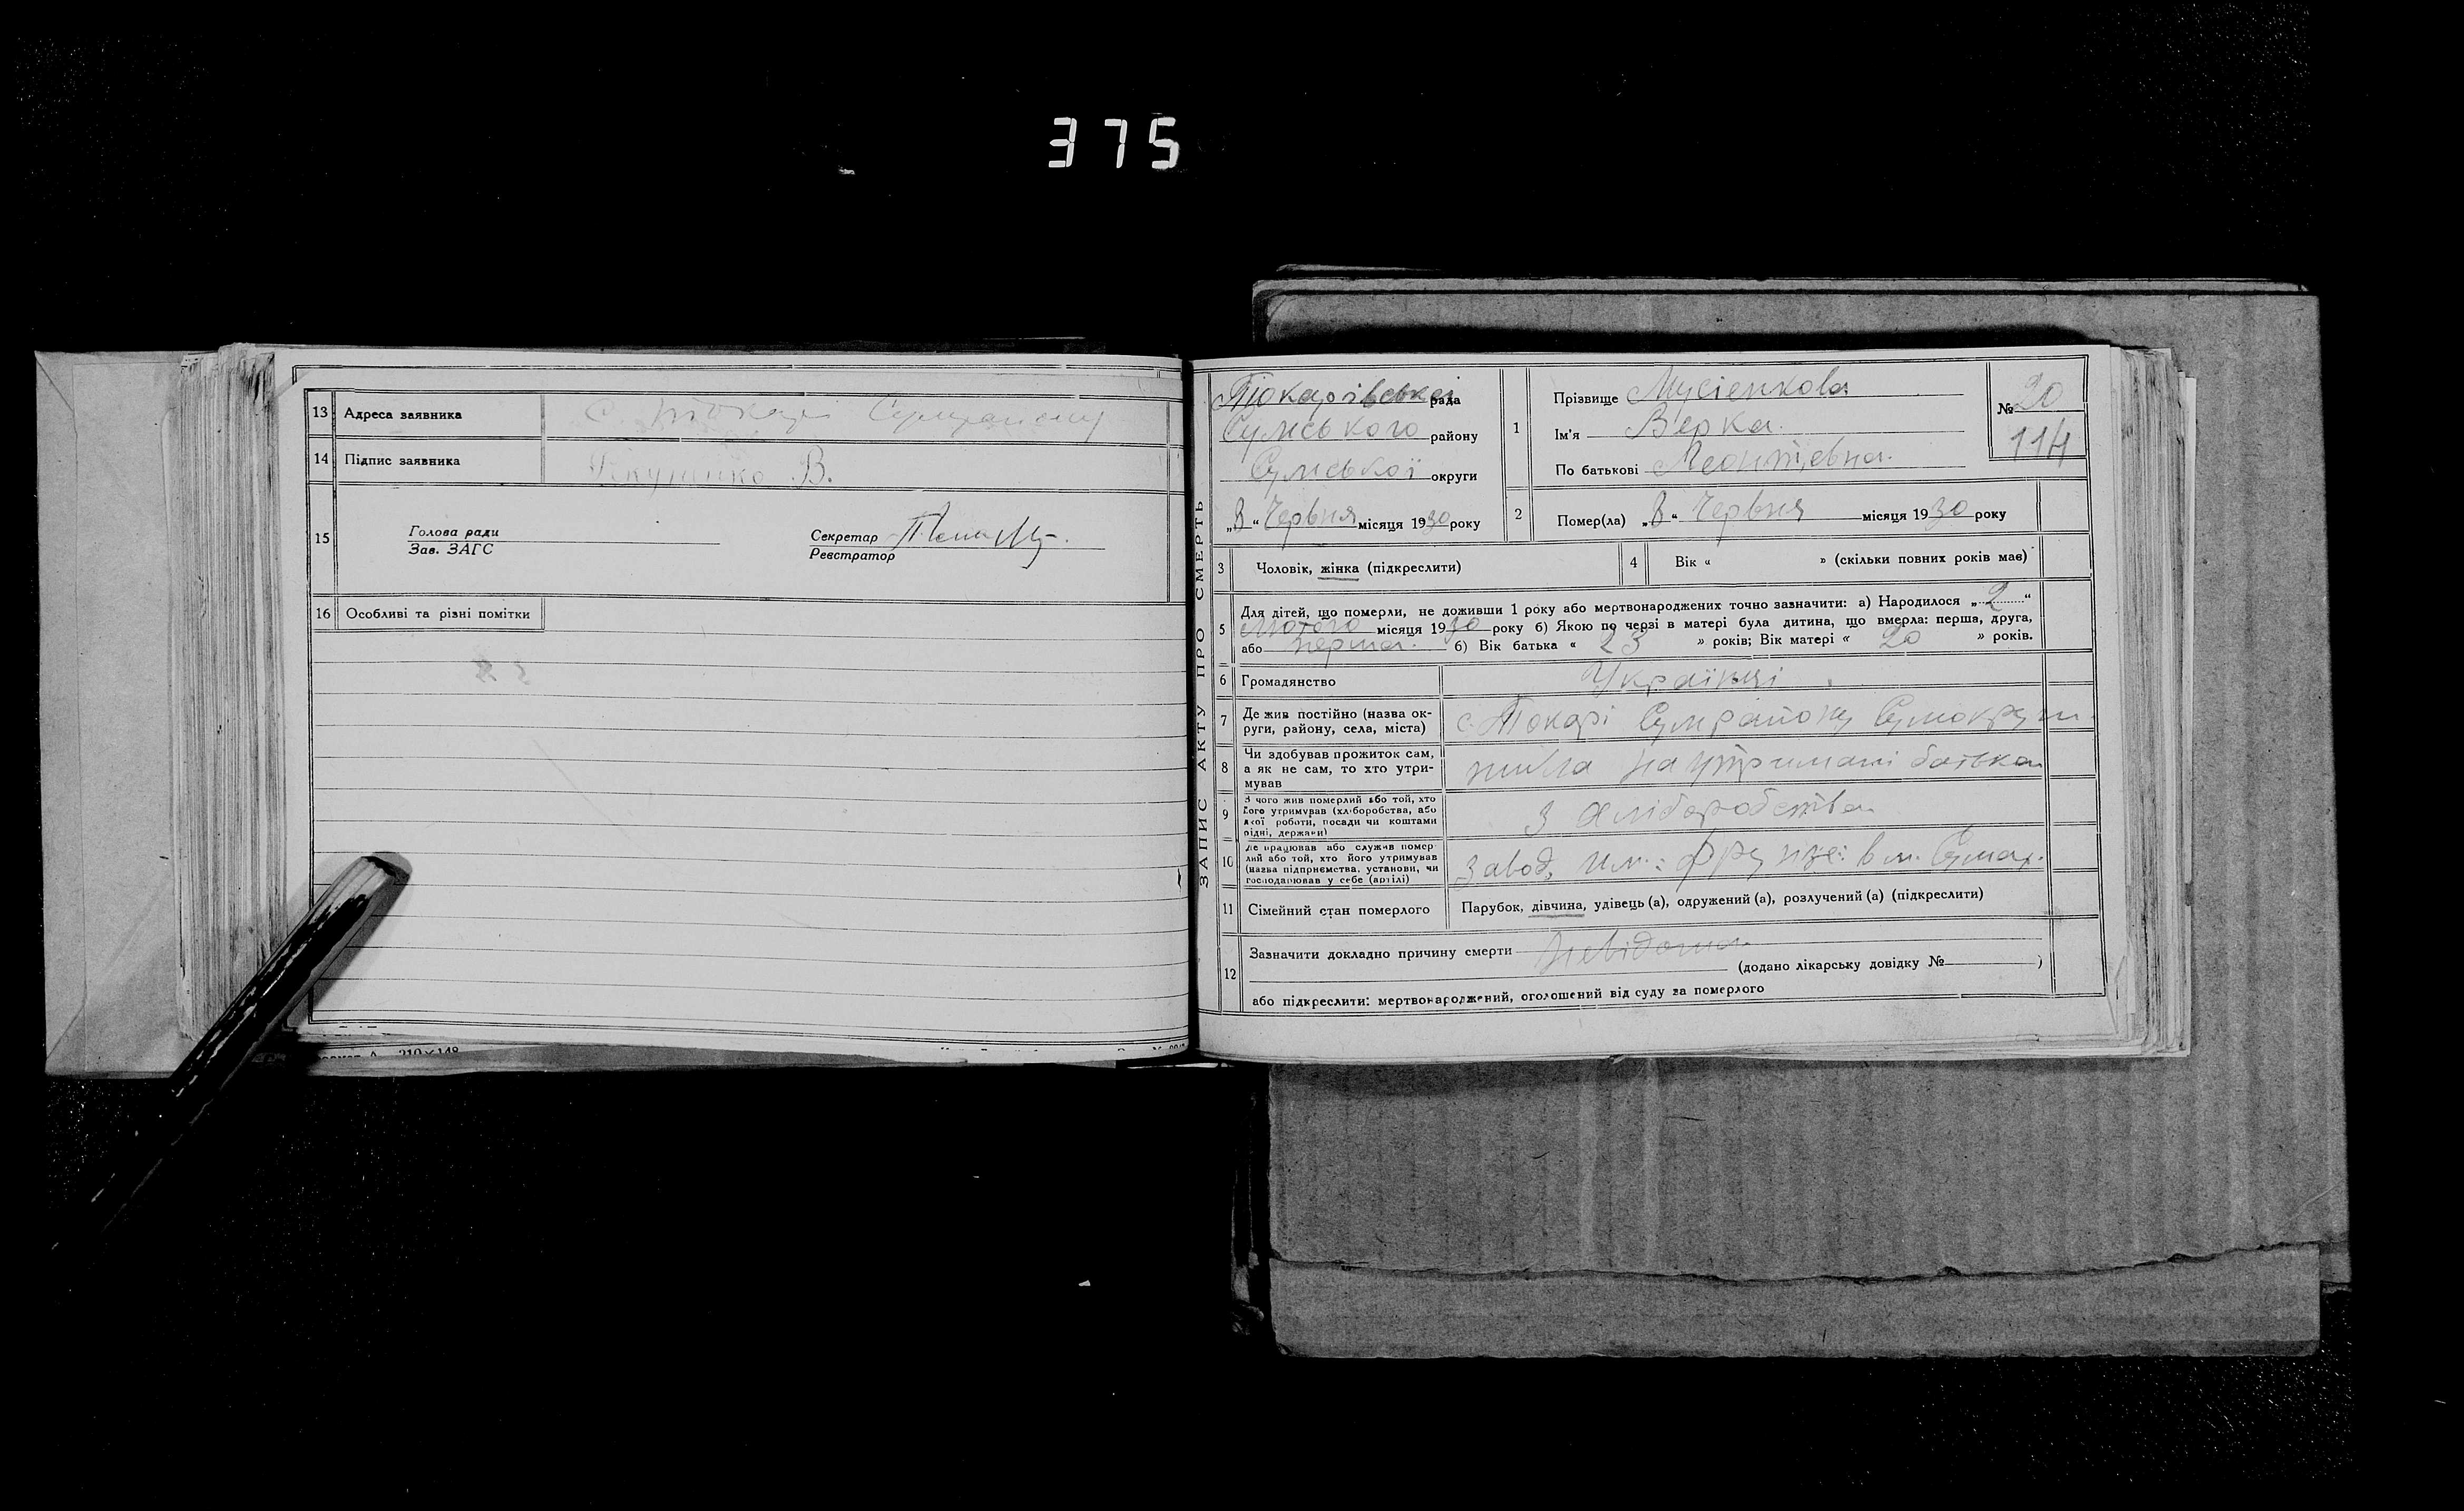 375
13 Адреса заявника с. Токарі Сумрайону
14 Підпис заявника В.
15 Голова ради
Зав. ЗАГС
Секретар
Реєстратор
16 Особливі та різні помітки
210×148
ЗАПИС АКТУ ПРО СМЕРТЬ
Токарівської рада
Сумського району
Сумської округи
„8“ Червня місяця 1930 року
1 Прізвище Мусієнкова
Ім'я Вєрка
По батькові Леонтієвна
№ 20
114
2 Помер(ла) „8“ Червня місяця 1930 року
3 Чоловік, жінка (підкреслити)
4 Вік « » (скільки повних років має)
5 Для дітей, що померли, не доживши 1 року або мертвонароджених точно зазначити: а) Народилося „2“
Лютого місяця 1930 року б) Якою по черзі в матері була дитина, що вмерла: перша, друга,
або перша. б) Вік батька « 23 » років; Вік матері « 20 » років.
6 Громадянство Українці
7 Де жив постійно (назва округи, району, села, міста) с. Токарі Сумрайону Сумокруги
8 Чи здобував прожиток сам,
а як не сам, то хто утри-
мував жила на утримані батька
9 З чого жив померлий або той, хто
його утримував (хліборобства, або
якої роботи, посади чи коштами
рідні, держави) З хліборобства
10 Де працював або служив помер
лий або той, хто його утримував
(назва підприємства, установи, чи
господарював у себе (артілі) Завод. им.: Фрунзе: в м. Сумах.
11 Сімейний стан померлого Парубок, дівчина, удівець (а), одружений (а), розлучений (а) (підкреслити)
12 Зазначити докладно причину смерти Невідома
(додано лікарську довідку № )
або підкреслити: мертвонароджений, оголошений від суду за померлого